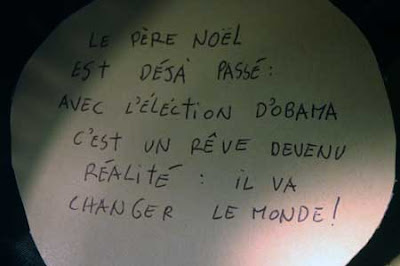 LE PÈRE NOËL
EST DÉJÀ PASSÉ :
AVEC L'ÉLÉCTION D'OBAMA
C'EST UN RÊVE DEVENU
RÉALITÉ : IL VA
CHANGER LE MONDE !